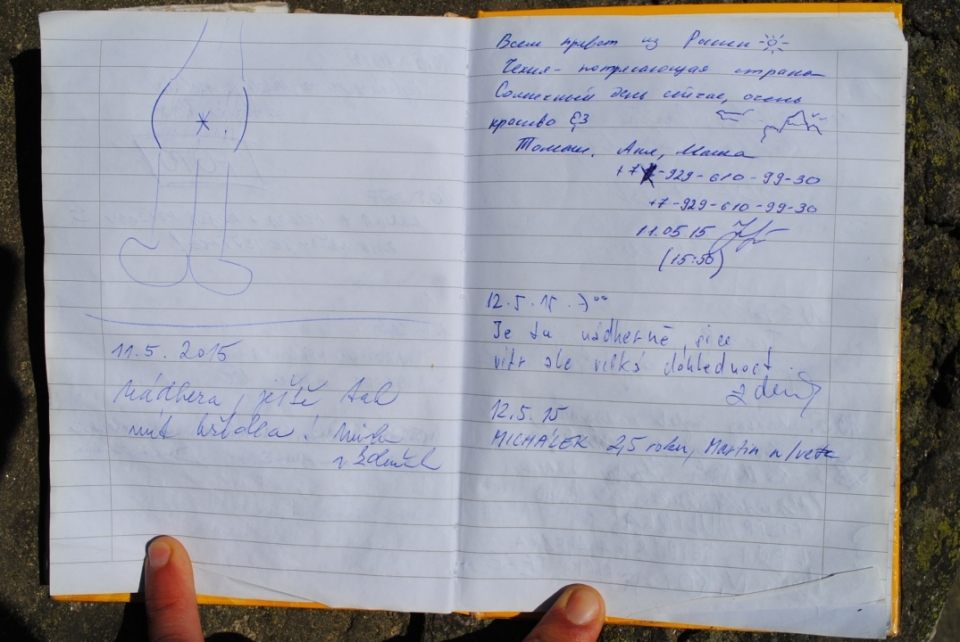 11.5. 2015
Nádhera, ještě tak
mít křídla!
Всем привет из России
Чехия - потрясающая страна
Солнечный день сейчас, очень
красиво
Томаш, Аня, Маша
+7 -929-610-99-30
+7-929-610-99-30
11.05.15
(15:50)
12.5.15
Je tu nádherně, sice
vítr ale velká dohlednost
Zdeněk
12.5.15
MICHÁLEK 2,5 roku, Martin